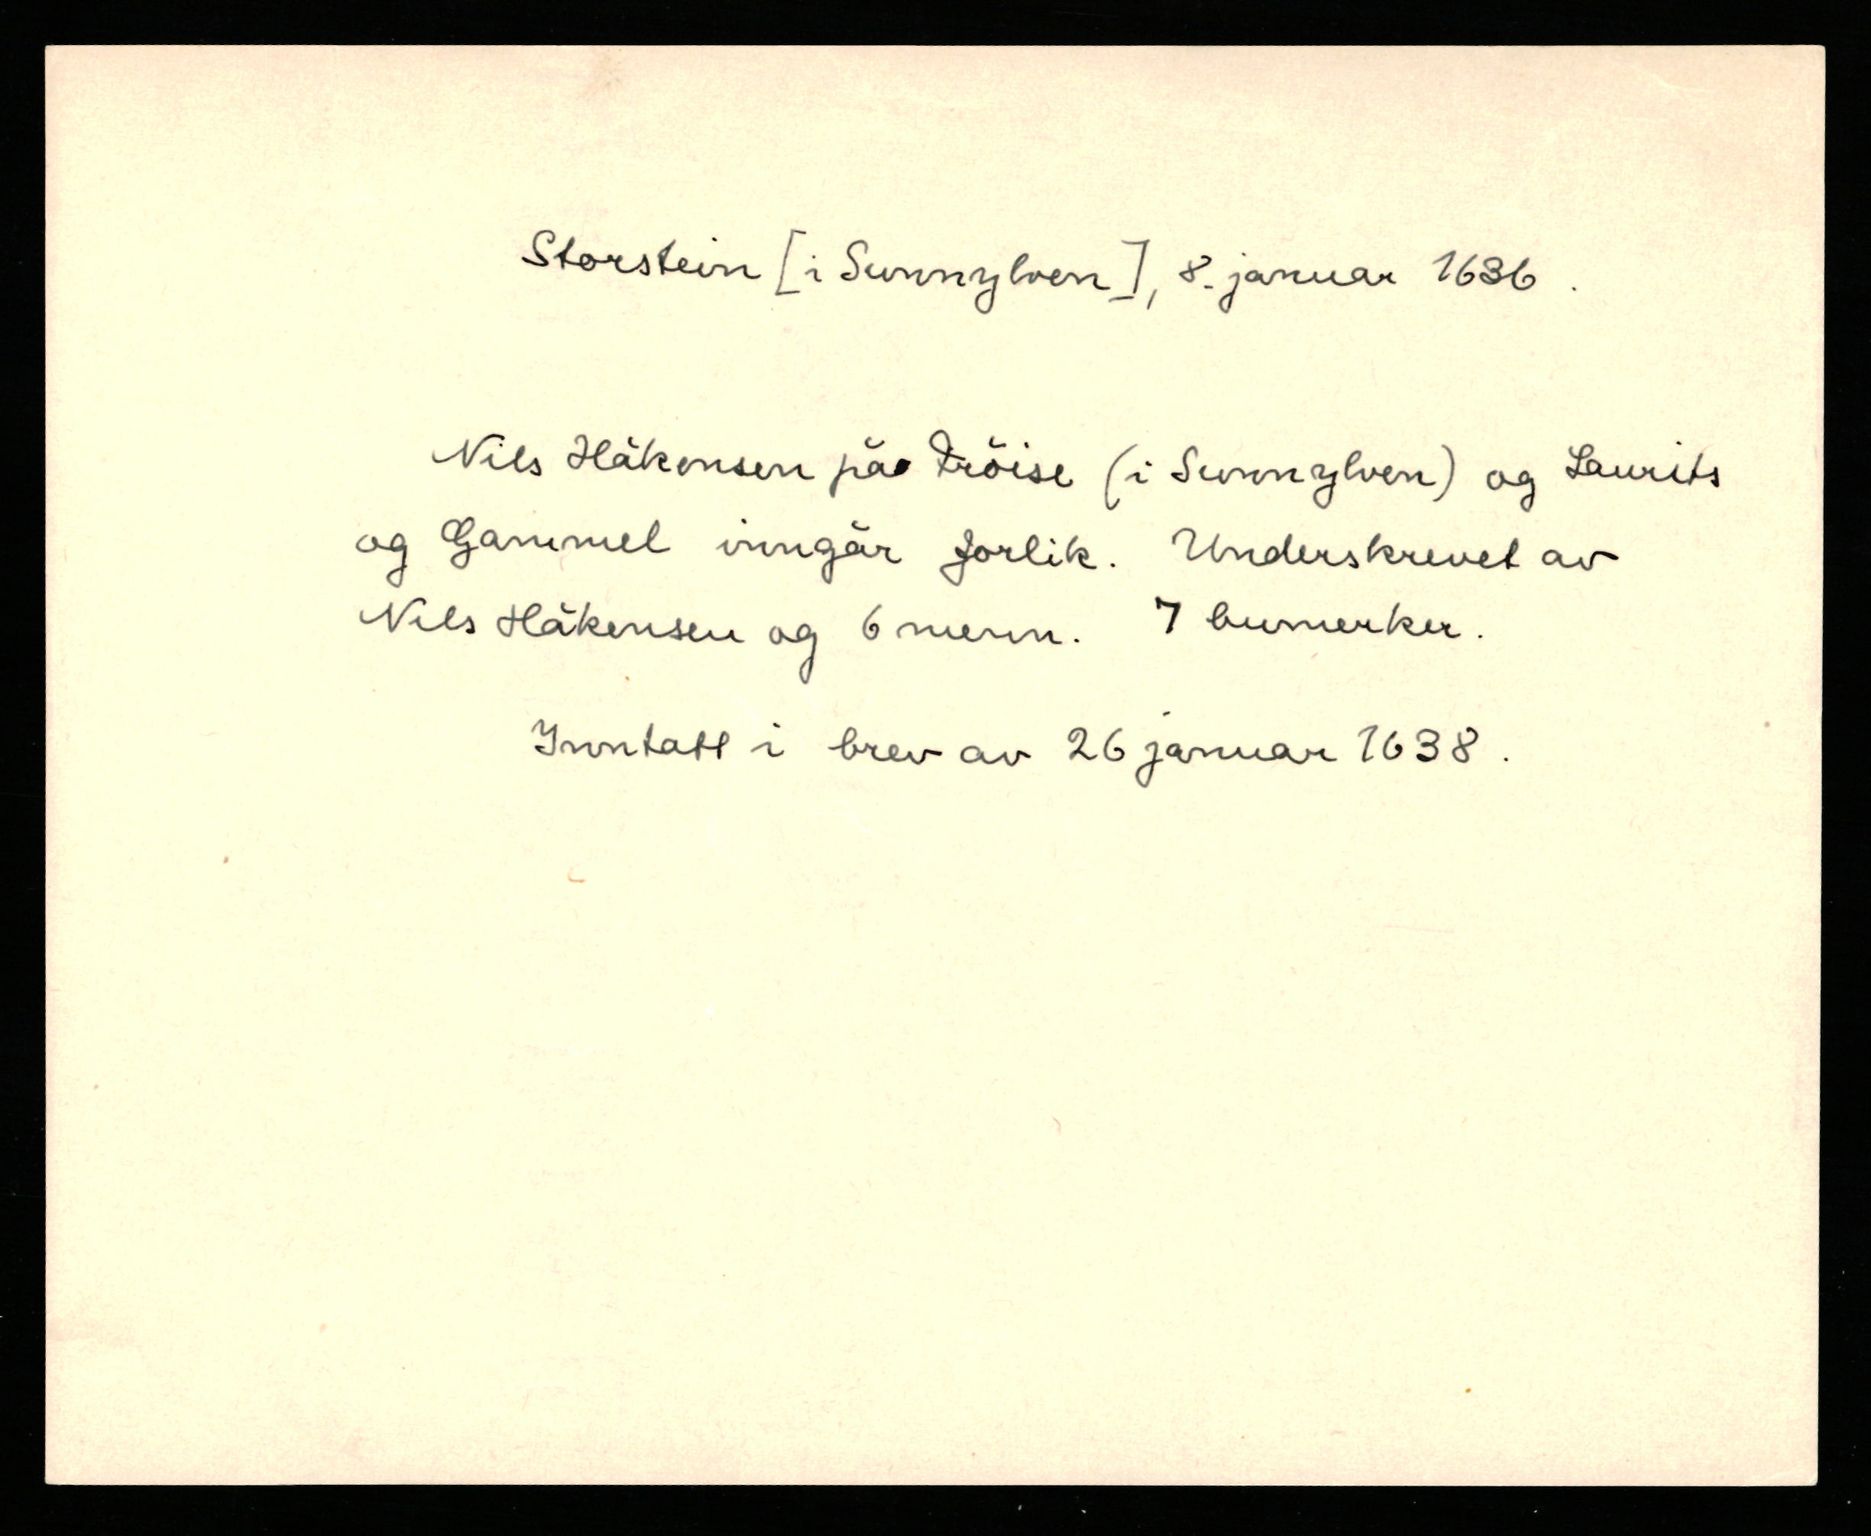 Storstein [i Sunnylven], 8. januar 1636.
Nils Håkensen på Fröise (i Sunnylven) og Laurits
og Gammel inngår forlik. Underskrevet av
Nils Håkensen og 6 menn. 7 bumerker.
Inntatt i brev av 26 januar 1638.